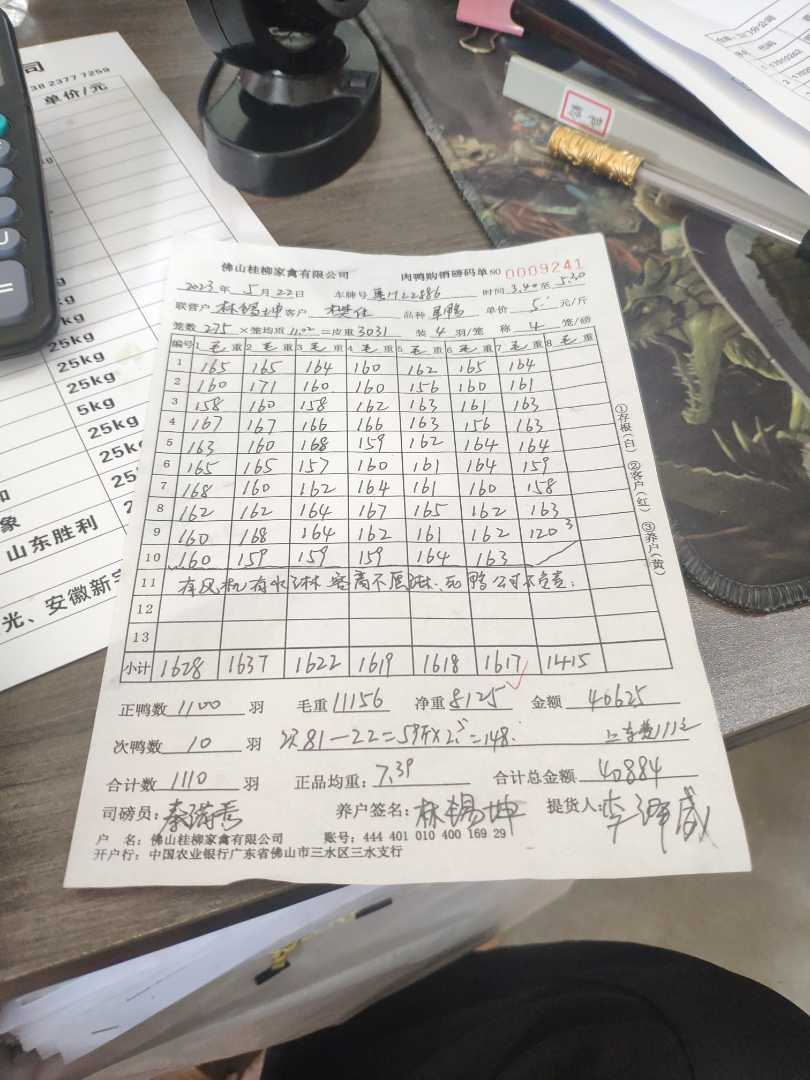 司
38 2377 7259
单价/元
25kg
25kg
25kg
5kg
25kg
25kg
25kg
山东胜利
光、安徽新宝
佛山桂柳家禽有限公司 肉鸭购销磅码单 NO 0009241
2023年 5月 22日 车牌号 粤1722886 时间 3.40 至 5.30
联营户 林锡坤 客户 品种 单价 5 元/斤
笼数 275 ×笼均重 11.02 =皮重 3031 装 4 羽/笼 称 4 笼/磅
编号 1 毛 重 2 毛 重 3 毛 重 4 毛 重 5 毛 重 6 毛 重 7 毛 重 8 毛 重
1 165 165 164 160 162 165 164
2 160 171 160 160 156 160 161
3 158 160 158 162 163 161 163
4 167 167 166 166 163 156 163
5 163 160 168 159 162 164 164
6 165 165 157 160 161 164 159
7 168 160 162 164 161 160 158
8 162 162 164 167 165 162 163
9 160 168 164 162 161 162 120 3
10 160 159 159 159 164 163
11 有风机有水淋 客商不愿淋、死鸭公司不负责;
12
13
小计 1628 1637 1622 1619 1618 1617 1415
正鸭数 1100 羽 毛重 11156 净重 8125 金额 40625
次鸭数 10 羽 次81-22=59斤×2.5=148. 上车费111元
合计数 1110 羽 正品均重: 7.39 合计总金额 40884
司磅员: 养户签名: 林锡坤 提货人:
户 名: 佛山桂柳家禽有限公司 账号: 444 401 010 400 169 29
开户行: 中国农业银行广东省佛山市三水区三水支行
①存根(白) ②客户(红) ③养户(黄)